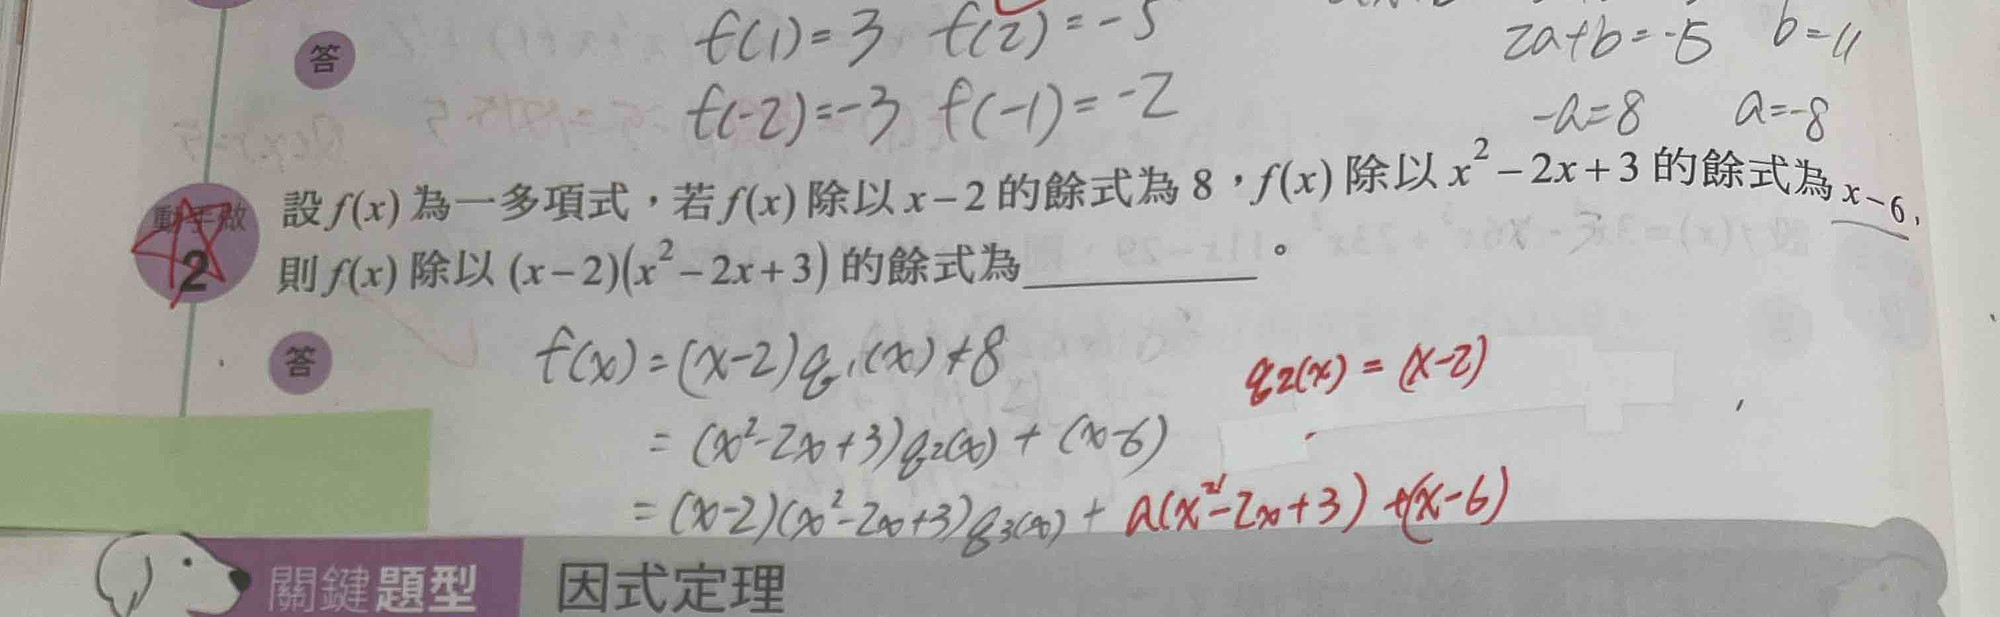 f(1)=3 f(2)=-5
2a+b=-5 b=11
答
f(-2)=-3 f(-1)=-2
-a=8 a=-8
動手做
2
設 f(x) 為一多項式，若 f(x) 除以 x-2 的餘式為 8，f(x) 除以 x²-2x+3 的餘式為 x-6，
則 f(x) 除以 (x-2)(x²-2x+3) 的餘式為＿＿＿＿。
答
f(x)=(x-2)q₁(x)+8
q₂(x)=(x-2)
=(x²-2x+3)q₂(x)+(x-6)
=(x-2)(x²-2x+3)q₃(x)+a(x²-2x+3)+(x-6)
關鍵題型 因式定理